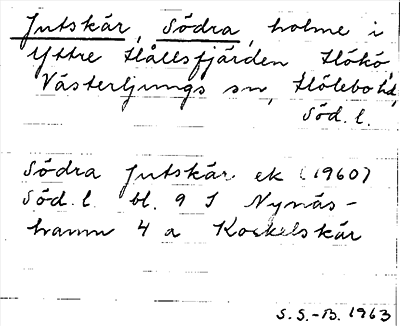 Jutskär, Södra, holme i
Yttre Hållsfjärden Hökö,
Västerljungs sn, Hölebo hd,
Söd. l.
Södra Jutskär ek (1960)
Söd. l. bl. 9 I Nynäs-
hamn 4 a Kockelskär
S.S.-B. 1963